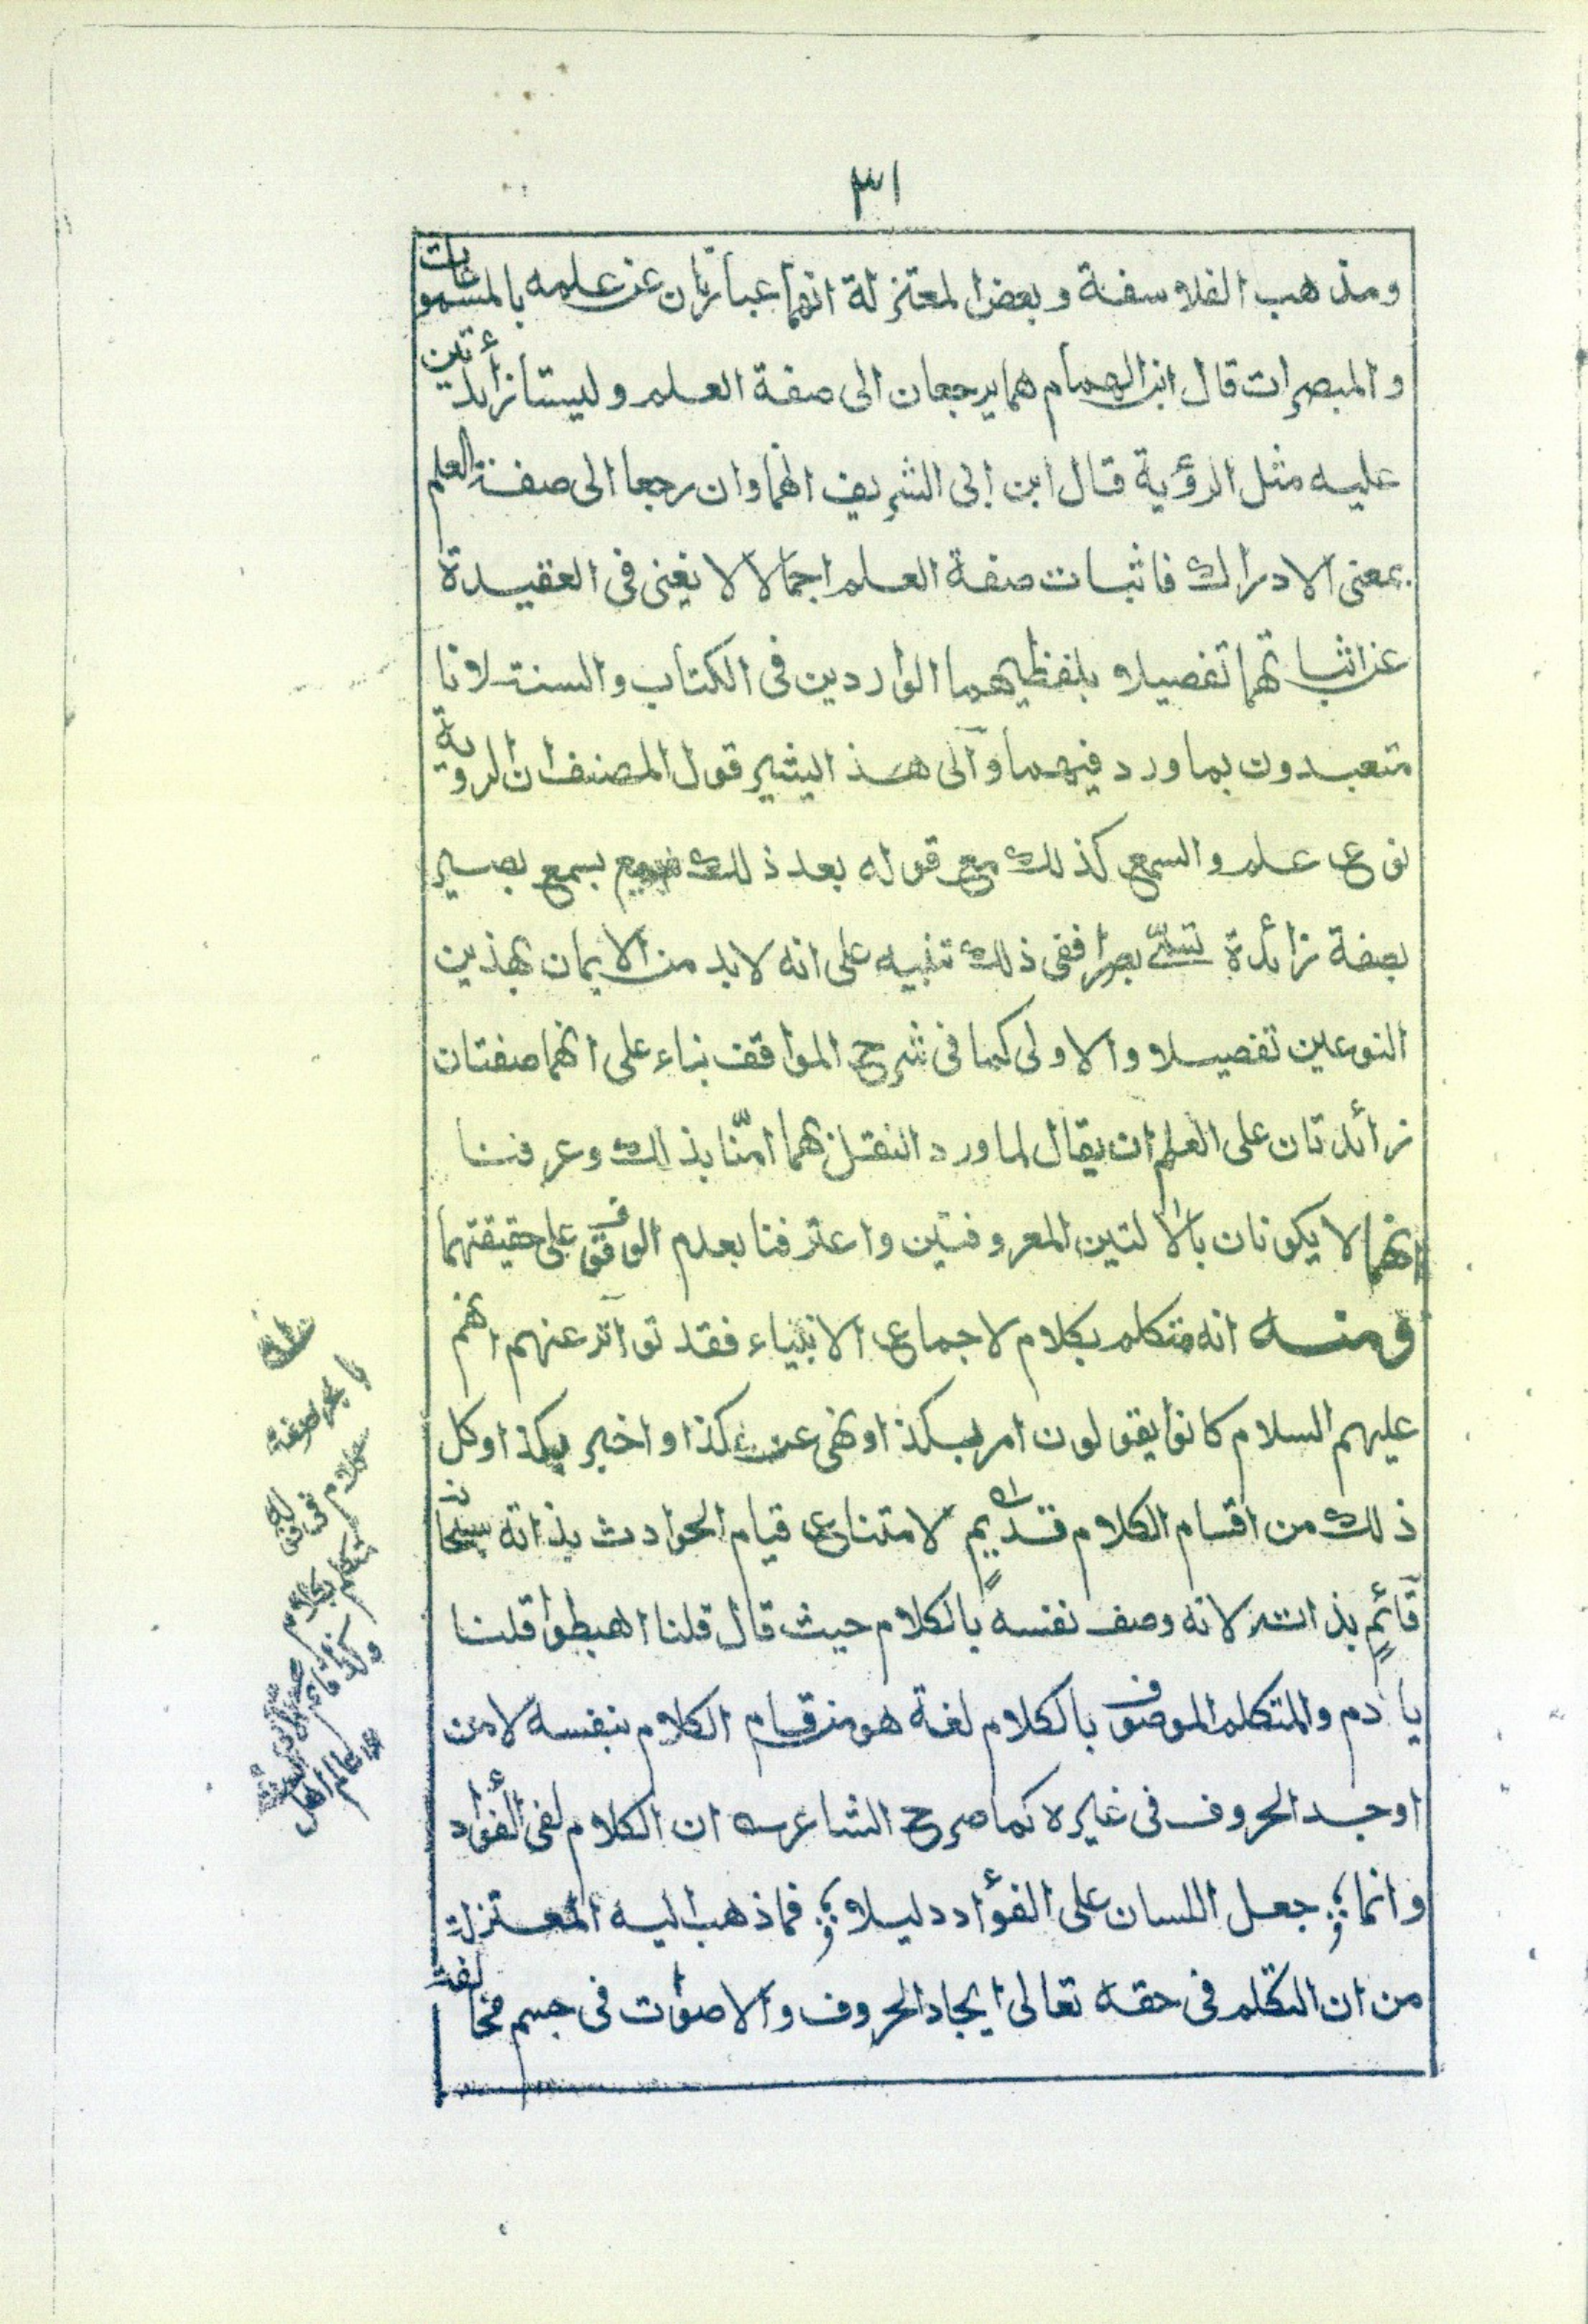 ٣١
ومذهب الفلاسفة وبعض المعتزلة انهما عبارتان عن علمه بالمسموعات
والمبصرات قال ابن الهمام هما يرجعان الى صفة العلم وليستا زائدتين
عليه مثل الرؤية قال ابن ابى الشريف انهما وان رجعا الى صفة العلم
بمعنى الادراك فاثبات صفة العلم اجمالا لا يغنى فى العقيدة
عن اثباتهما تفصيلا بلفظيهما الواردين فى الكتاب والسنة لانا
متعبدون بما ورد فيهما والى هذا يشير قول المصنف ان الروية
نوع علم والسمع كذلك مع قوله بعد ذلك بسمع بصير
بصفة زائدة تسمّى بصرا ففى ذلك تنبيه على انه لابد من الايمان بهذين
النوعين تفصيلا والاولى كما فى شرح المواقف بناء على انهما صفتان
زائدتان على العلم ان يقال لما ورد النقل بهما امنّا بذلك وعرفنا
انهما لا يكونان بالالتين المعروفتين واعترفنا بعدم الوقوف على حقيقتهما
ومنه انه متكلم بكلام لاجماع الانبياء فقد تواتر عنهم انهم
عليهم السلام كانوا يقولون امر بكذا ونهى عن كذا واخبر بكذا وكل
ذلك من اقسام الكلام قديمٍ لامتناع قيام الحوادث بذاته سبحانه
قائمٍ بذاته لانه وصف نفسه بالكلام حيث قال قلنا اهبطوا قلنا
يا ادم والمتكلم الموصوف بالكلام لغة هو من قام الكلام بنفسه لا من
اوجد الحروف فى غيره كما صرح الشاعر ان الكلام لفى الفؤاد
وانما جعل اللسان على الفؤاد دليلا فما ذهب اليه المعتزلة
من ان التكلم فى حقه تعالى ايجاد الحروف والاصوات فى جسم مخالفة
صفة
كلام
بكلام